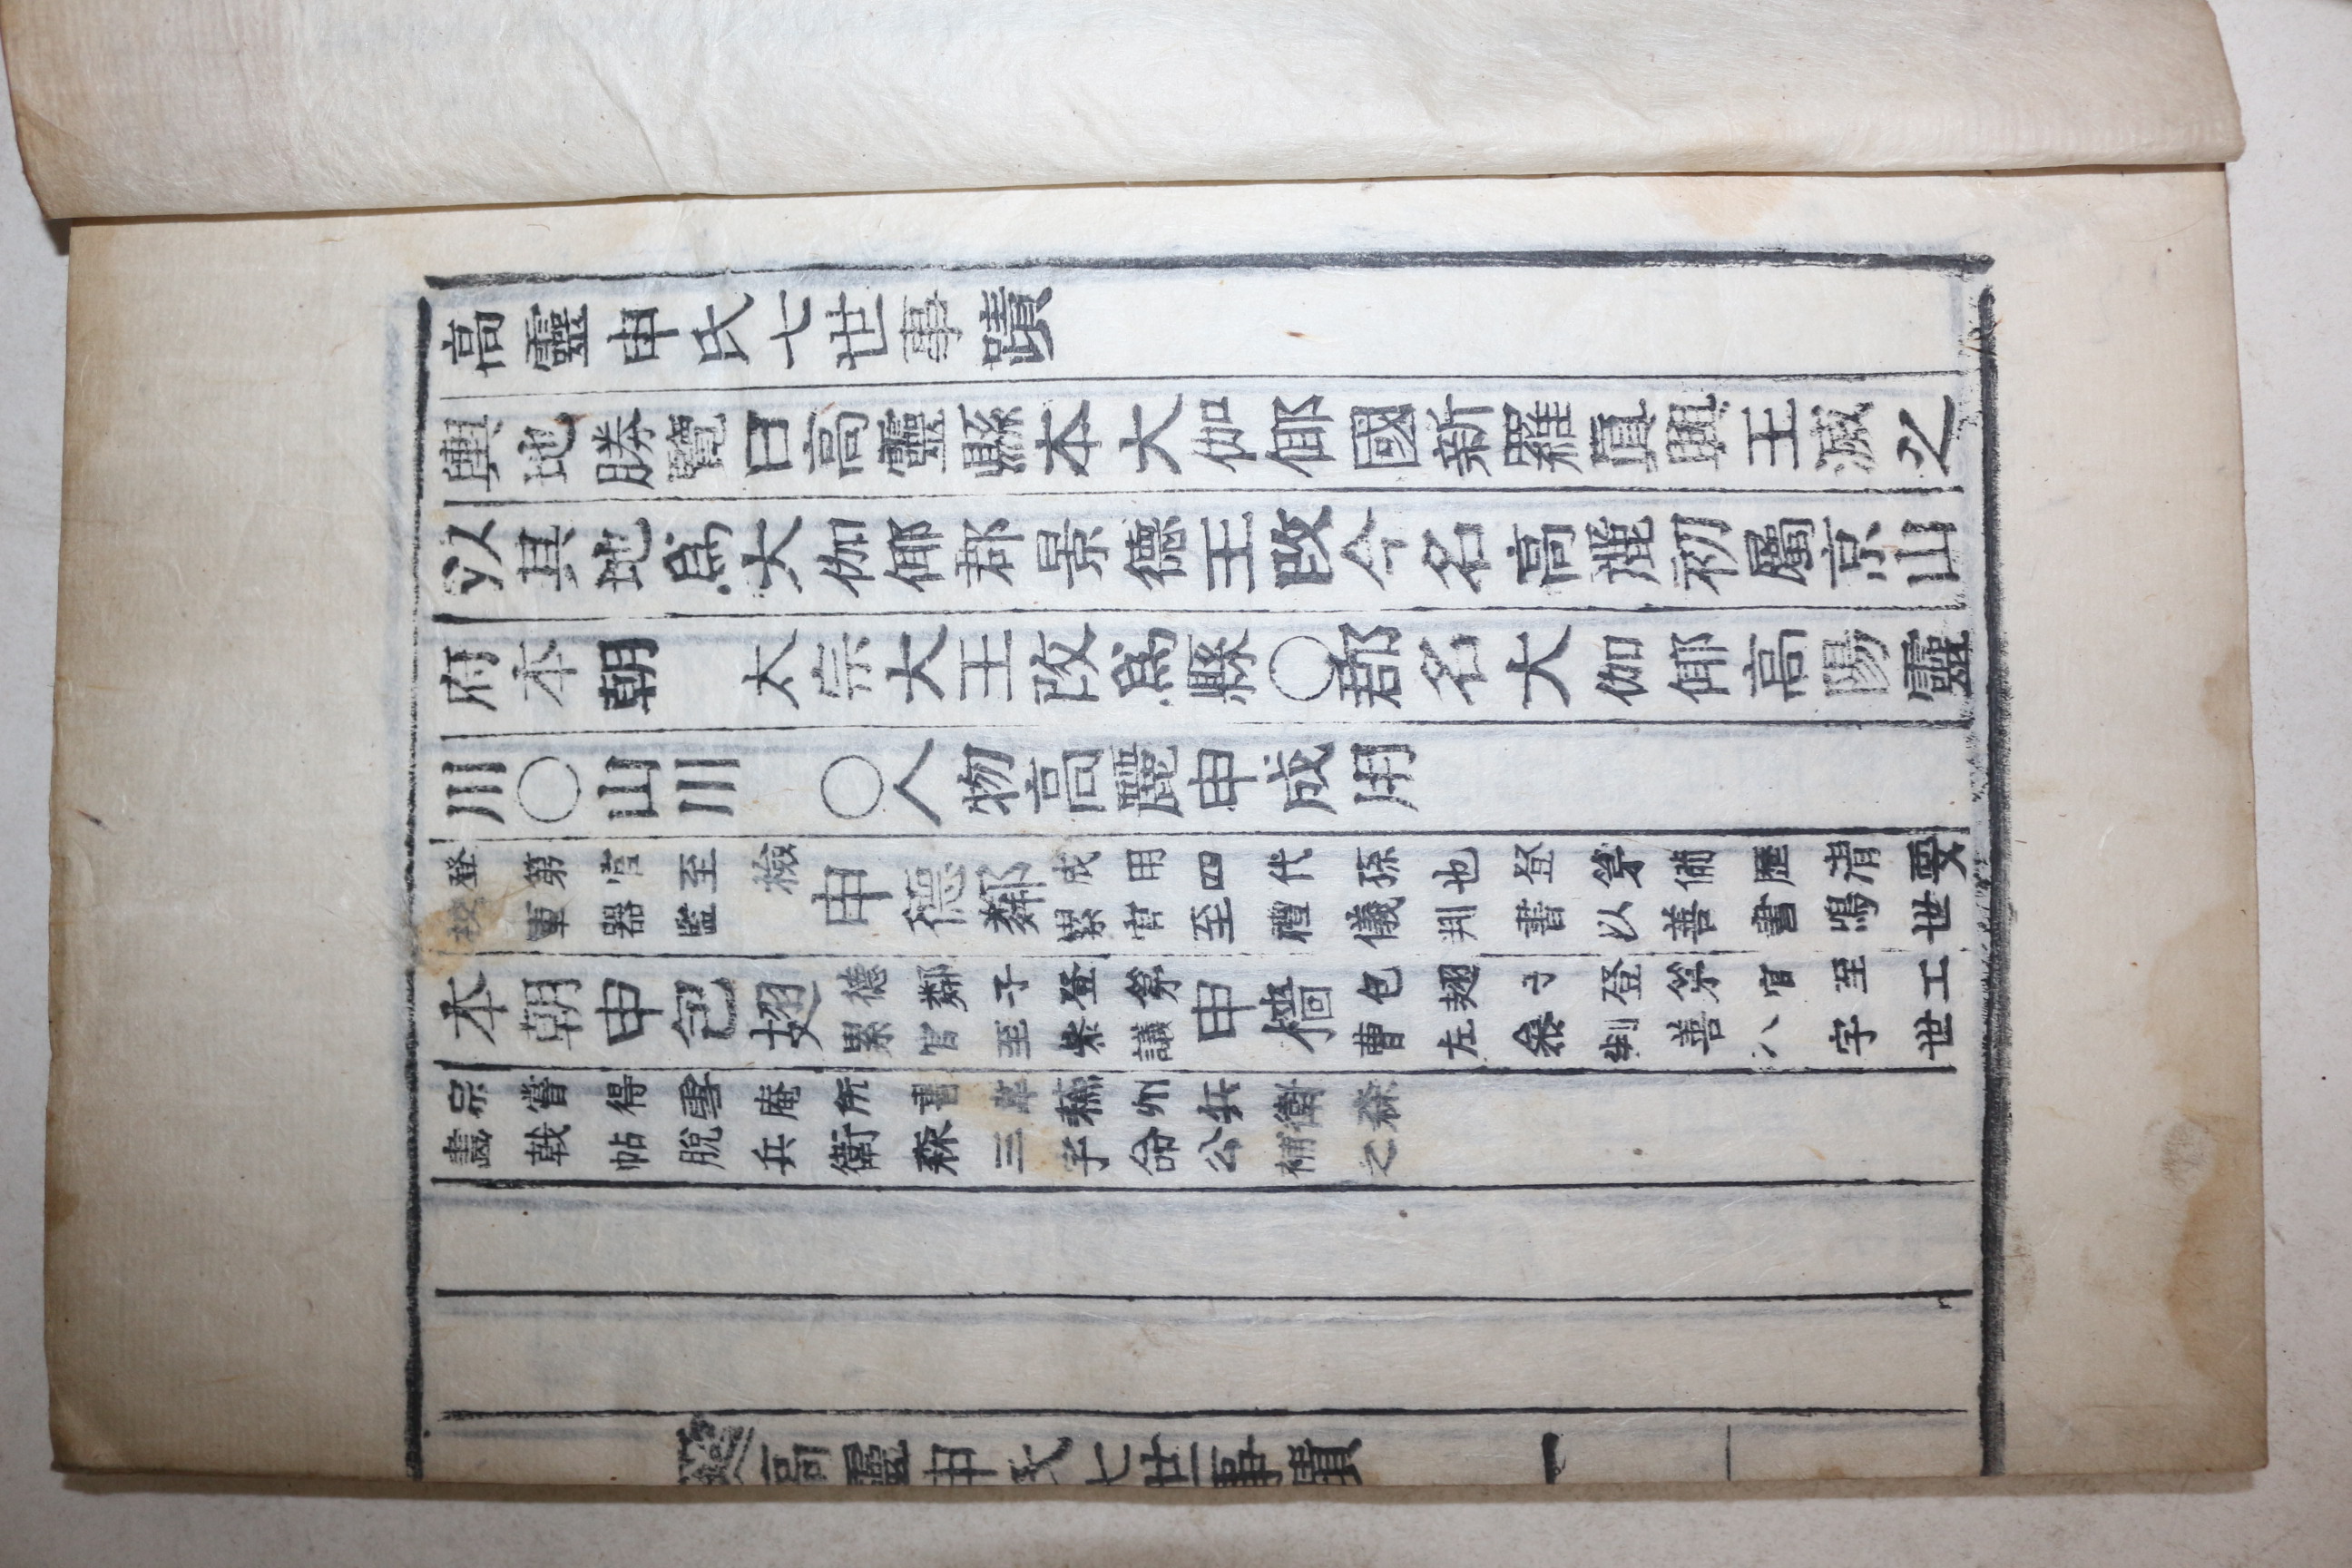 高靈申氏七世事蹟
輿地勝覽曰高靈縣本大伽倻國新羅眞興王滅之
以其地爲大伽倻郡景德王改今名高麗初屬京山
府本朝 太宗大王改爲縣○郡名大伽倻高陽靈
川○山川 ○人物高麗申成用
登第官至檢校軍器監申德鄰成用四代孫也登第備歷清要累官至禮儀判書以善書鳴世
本朝申包翅德鄰子登第累官至叅議申檣包翅子登第官至工曹左叅判善八字世
宗嘗得雪庵所書韋蘇州兵衛森畫戟帖脫兵衛森三字命公補之
高靈申氏七世事蹟 一